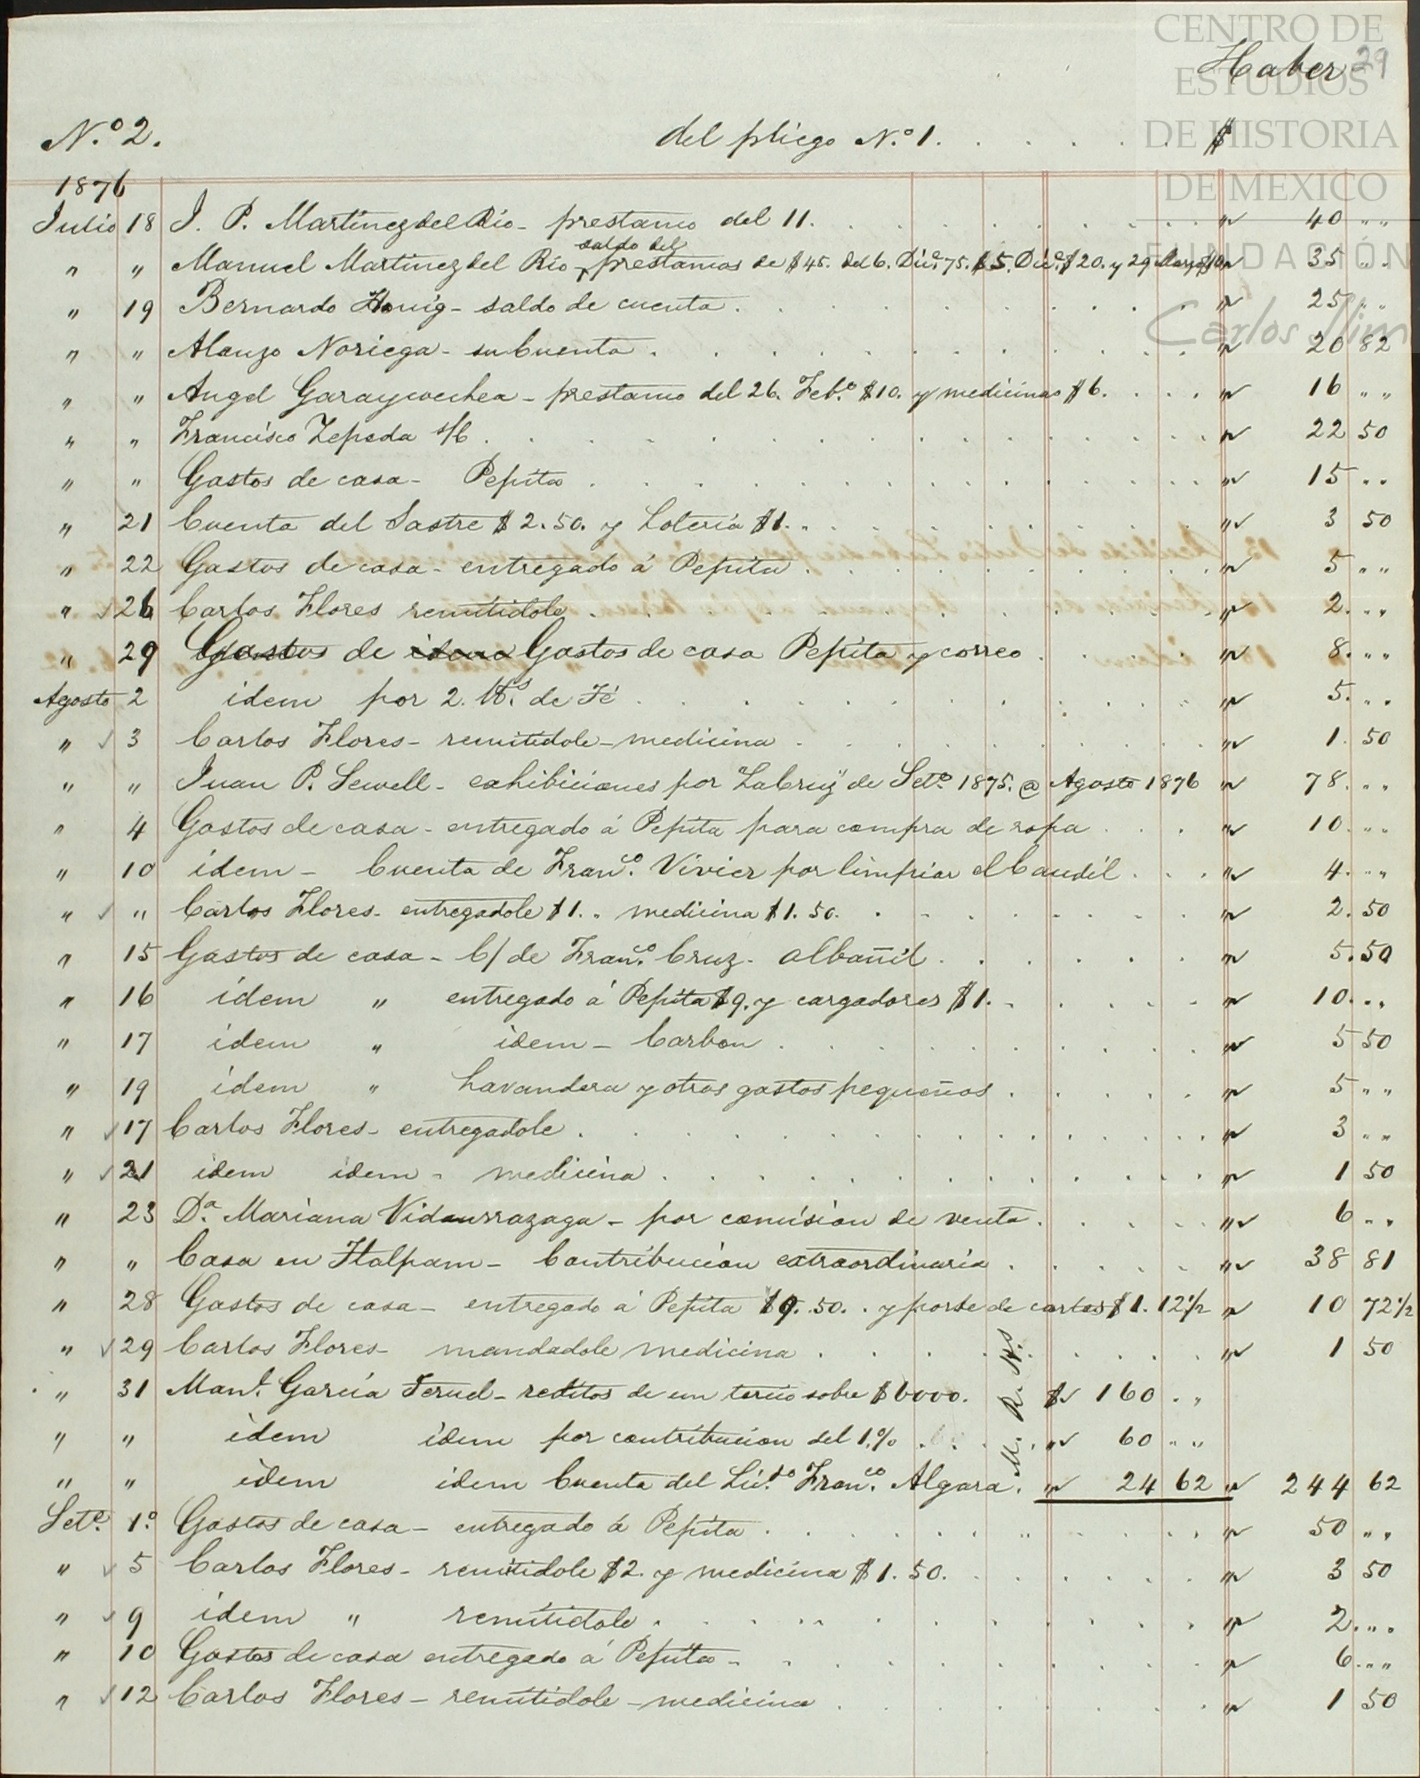 CENTRO DE
ESTUDIOS
DE HISTORIA
DE MEXICO
FUNDACIÓN
Carlos Slim
Haber 29
N.º 2. del pliego N.º 1. $
1876
Julio 18 J. P. Martinez del Rio - prestamo del 11. " 40 " "
" " Manuel Martinez del Rio - saldo del prestamos de $45. del 6. Dic.e 75. $5. Dic.e $20. y 29 " 35 " "
" 19 Bernardo Honig - saldo de cuenta. " 25 " "
" " Alonzo Noriega - su Cuenta. " 20 82
" " Angel Garaycochea - prestamo del 26. Feb.o $10. y medicinas $6. " 16 " "
" " Francisco Zepeda s/c. " 22 50
" " Gastos de casa - Pepita. " 15 " "
" 21 Cuenta del Sastre $2.50. y Loteria $1. " 3 50
" 22 Gastos de casa - entregado á Pepita. " 5 " "
" 26 Carlos Flores remitidole. " 2. " "
" 29 Gastos de idem Gastos de casa Pepita y correo. " 8. " "
Agosto 2 idem por 2. de Fé. " 5. " "
" 3 Carlos Flores - remitidole - medicina. " 1. 50
" " Juan P. Sewell - exhibiciones por de Set.e 1875. @ Agosto 1876 " 78. " "
" 4 Gastos de casa - entregado á Pepita para compra de ropa. " 10. " "
" 10 idem - Cuenta de Fran.co Vivier por limpiar el Candil. " 4. " "
" " Carlos Flores - entregadole $1. " medicina $1.50. " 2. 50
" 15 Gastos de casa - C/ de Fran.co Cruz - albañil. " 5. 50
" 16 idem " entregado á Pepita $9. y cargadores $1. " 10. " "
" 17 idem " idem - Carbon. " 5 50
" 19 idem " Lavandera y otros gastos pequeños. " 5 " "
" 17 Carlos Flores - entregadole. " 3 " "
" 21 idem idem - medicina. " 1 50
" 23 D.a Mariana Vidaurrazaga - por comision de venta. " 6 " "
" " Casa en Tlalpam - Contribucion extraordinaria. " 38 81
" 28 Gastos de casa - entregado á Pepita $9.50. y porte de cartas $1.12½ " 10 72½
" 29 Carlos Flores - mandadole medicina. " 1 50
" 31 Man.l Garcia Teruel - reditos de un tercio sobre $6000. $ 160 " "
" " idem idem por contribucion del 1.% " 60 " "
" " idem idem Cuenta del Lic.do Fran.co Algara. " 24 62 " 244 62
M. R. Rs.
Set.e 1.º Gastos de casa - entregado á Pepita. " 50 " "
" 5 Carlos Flores - remitidole $2. y medicina $1.50. " 3 50
" 9 idem " remitidole. " 2. " "
" 10 Gastos de casa entregado á Pepita - " 6. " "
" 12 Carlos Flores - remitidole - medicina. " 1 50